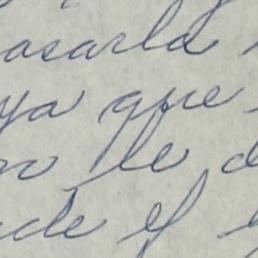 asarla
ya que
le d
de el